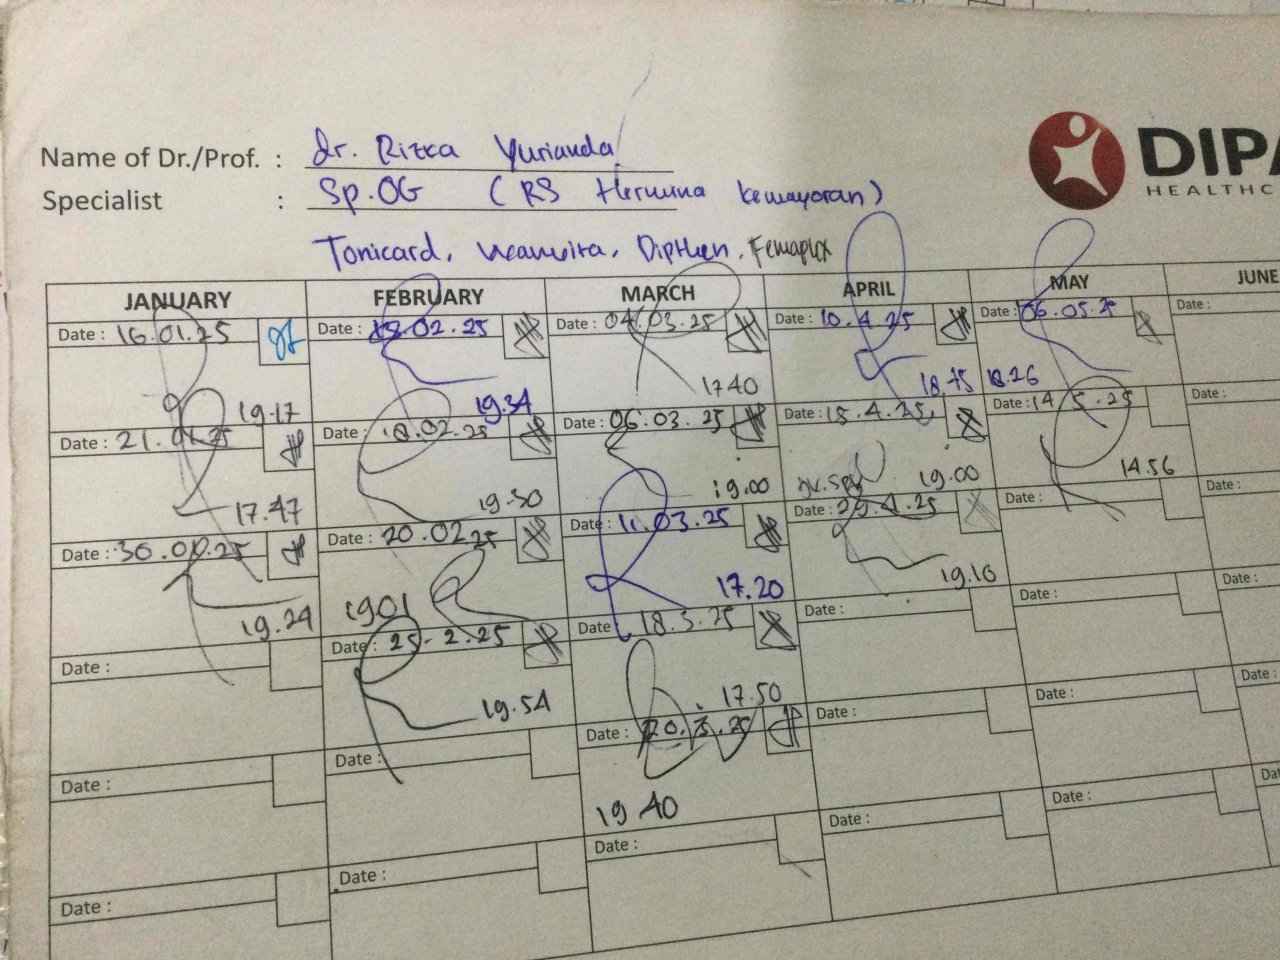 Name of Dr./Prof. : dr. Rizka Yurianda
DIPA
HEALTHC
Specialist : Sp.OG (RS Hermina Kemayoran)
Tonicard, Diphen, Femaplex
JANUARY FEBRUARY MARCH APRIL MAY JUNE
Date : 16.01.25 Date : 02.25 Date : 04.03.25 Date : 10.4.25 Date : 06.05.25 Date :
19.17 19.34 17 40 18.45 18.26
Date : 21.01.25 Date : 18.02.25 Date : 06.03.25 Date : 15.4.25 Date : 14.5.25
17.47 19.30 19.00 19.00 14.56
Date : 30.01.25 Date : 20.02.25 Date : 11.03.25 Date : 29.4.25 Date : Date :
19.24 1901 17.20 19.10
Date : Date : 25-2.25 Date : 18.3.25 Date : Date : Date :
19.54 17.50
Date : Date : Date : 20.3.25 Date : Date : Date :
19 40
Date : Date : Date : Date : Date : Da